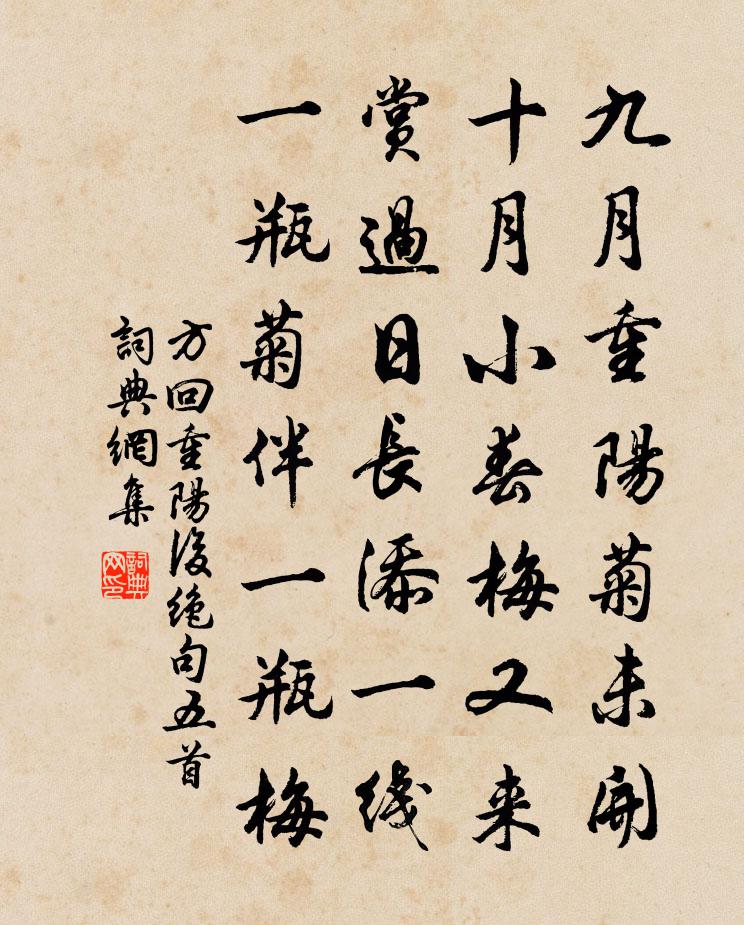 九月重陽菊未開
十月小春梅又来
賞過日長添一綫
一瓶菊伴一瓶梅
方回重陽後絶句五首
詞典網集
詞典
网印